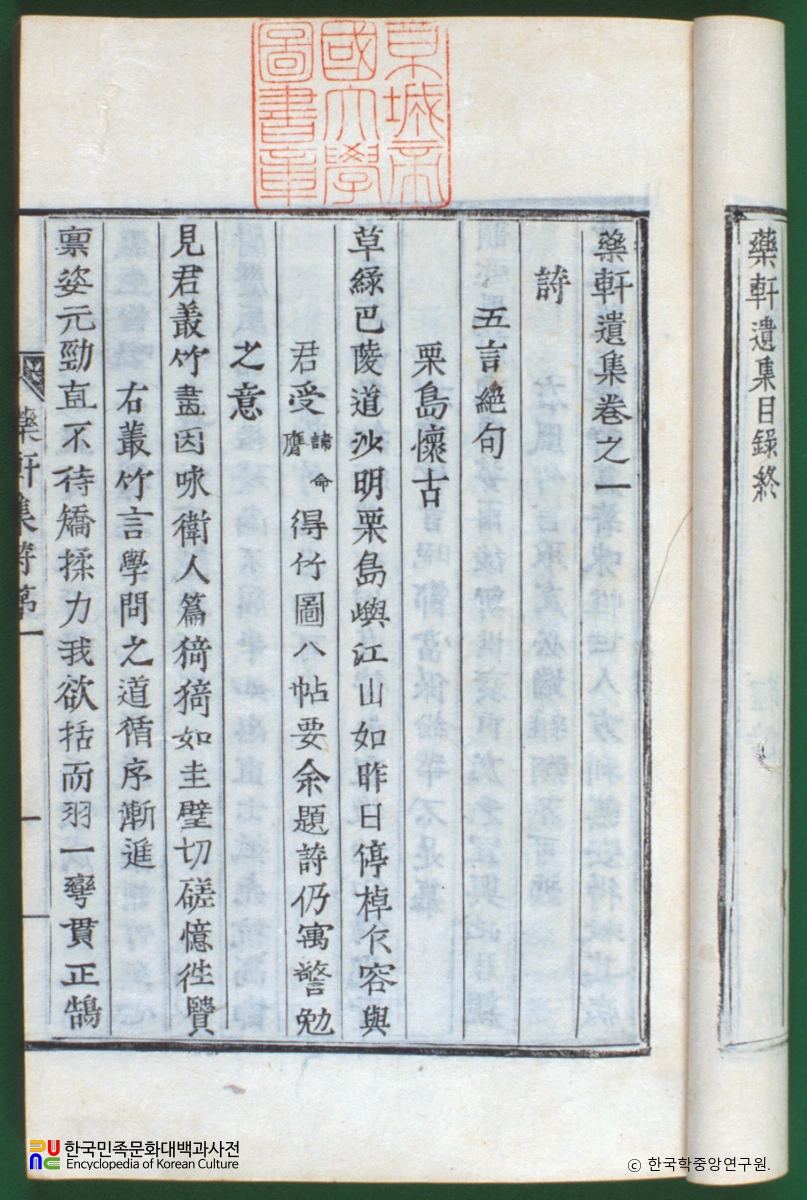 藥軒遺集目錄終
京城帝
國大學
圖書章
藥軒遺集卷之一
詩
五言絕句
栗島懷古
草綠巴陵道沙明栗島嶼江山如昨日停棹久容與
君受諦命膺得竹圖八帖要余題詩仍寓警勉
之意
見君叢竹畫因咏衛人篇猗猗如圭璧切磋憶徃贒
右叢竹言學問之道循序漸進
稟姿元勁直不待矯揉力我欲括而羽一彎貫正鵠
藥軒集詩第一
한국민족문화대백과사전
Encyclopedia of Korean Culture
ⓒ 한국학중앙연구원.